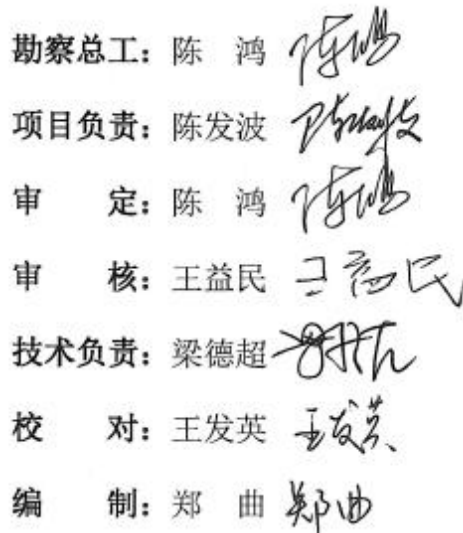 勘察总工：陈　鸿 陈鸿
项目负责：陈发波 陈发波
审　　定：陈　鸿 陈鸿
审　　核：王益民 王益民
技术负责：梁德超
校　　对：王发英 王发英
编　　制：郑　曲 郑曲